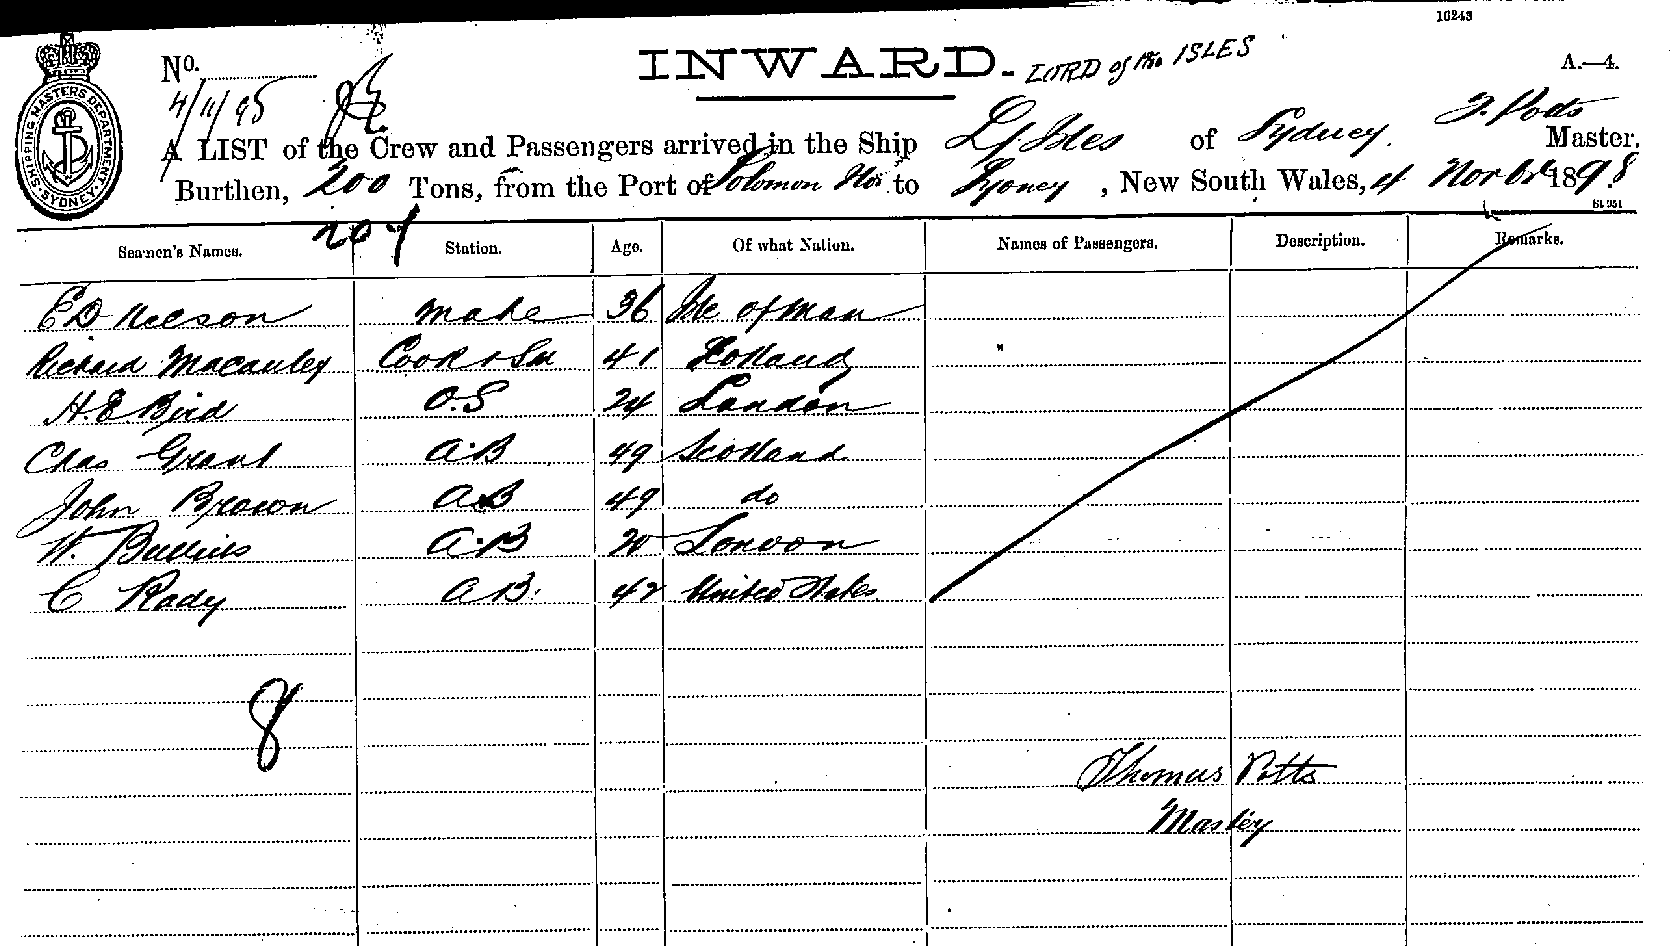 10243
No.
INWARD.
LORD of the ISLES
A.—4.
4/11/95
SHIPPING MASTERS DEPARTMENT SYDNEY
T. Potts
A LIST of the Crew and Passengers arrived in the Ship L of Isles of Sydney. Master.
Burthen, 200 Tons, from the Port of Solomon Ids. to Sydney, New South Wales, 4 Novbr 1898.
204
Seamen's Names. Station. Age. Of what Nation. Names of Passengers. Description. Remarks.
E D Neeson Mate 36 Isle of Man
Richard Macauley Cook & 41
H. E. Bird O.S 24 London
Chas Grant A.B 49 Scotland
John Brown A.B 49 do
W. A.B 20 London
C Rady A B. 42 United States
8
Thomas Potts
Master